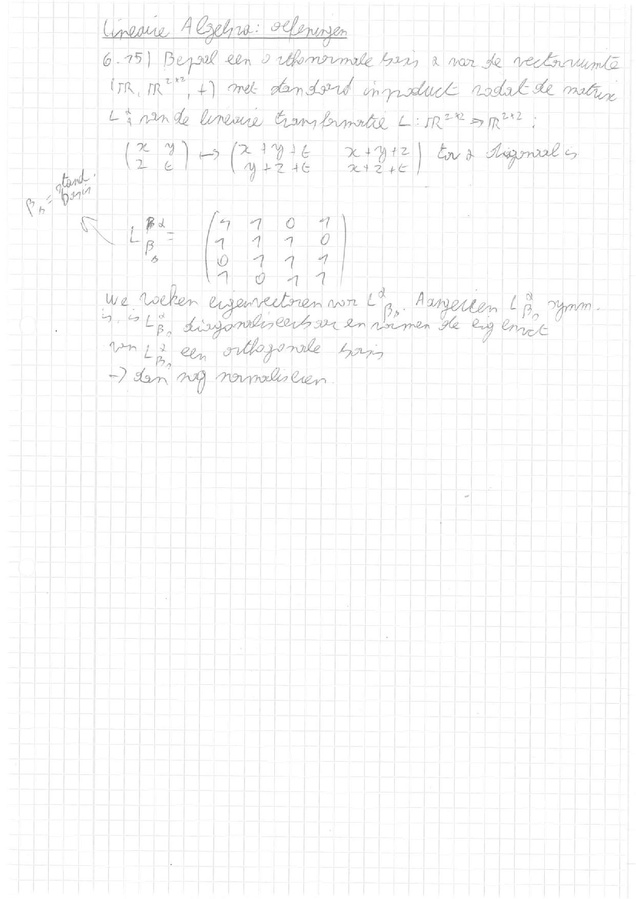 Lineaire Algebra: oefeningen
6.15) Bepaal een orthonormale basis α van de vectorruimte
(ℝ, ℝ²ˣ², +) met standaard inproduct zodat de matrix
L α α van de lineaire transformatie L: ℝ²ˣ² → ℝ²ˣ²:
(x y) ↦ (x+y+t x+y+z) tov α diagonaal is
(z t) (y+z+t x+z+t)
βs = stand. basis
L β βs = (1 1 0 1)
(1 1 1 0)
(0 1 1 1)
(1 0 1 1)
We zoeken eigenvectoren van L α βs. Aangezien L α βs symm.
is, is L α βs diagonaliseerbaar en vormen de eigenvect
van L α βs een orthogonale basis
→ dan nog normaliseren.